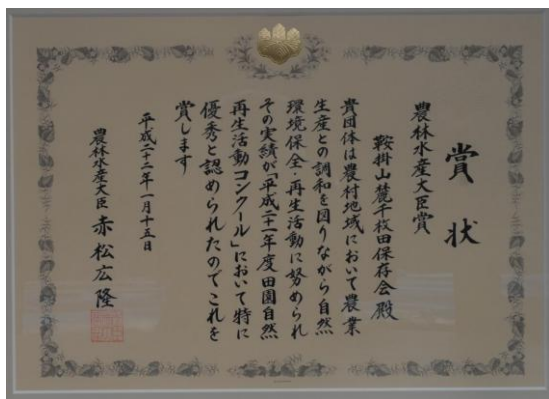 賞状
農林水産大臣賞
鞍掛山麓千枚田保存会殿
貴団体は農村地域において農業
生産との調和を図りながら自然
環境保全・再生活動に努められ
その実績が「平成二十一年度田園自然
再生活動コンクール」において特に
優秀と認められたのでこれを
賞します
平成二十二年一月十五日
農林水産大臣 赤松広隆